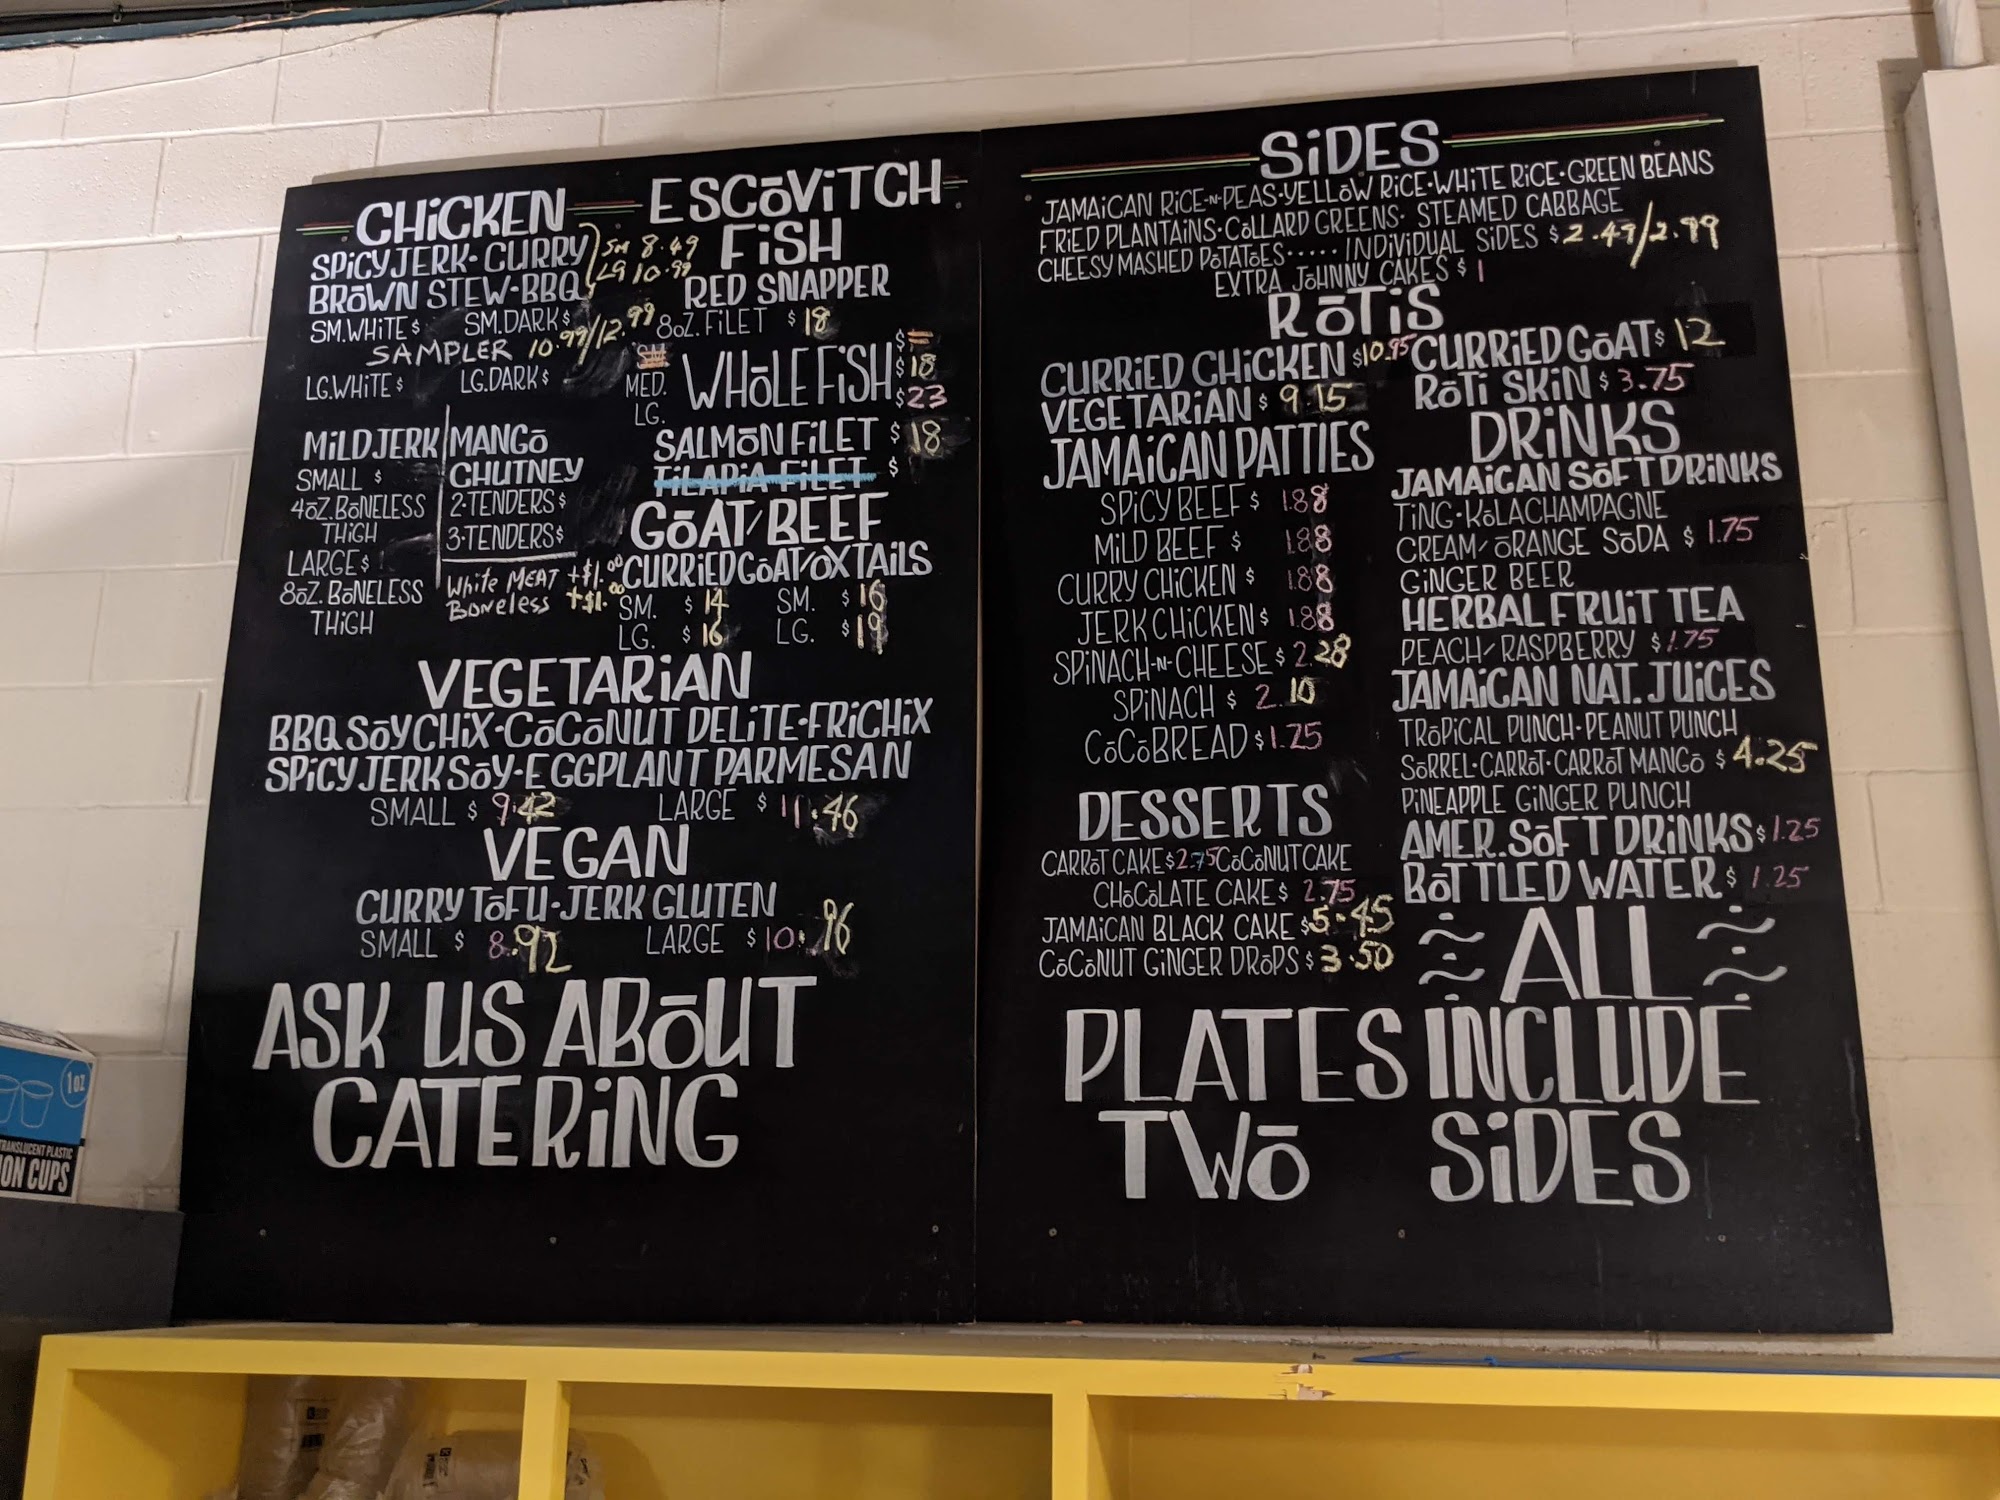 CHiCKEN
SPiCY JERK·CURRY
BRŌWN STEW·BBQ
SM 8.49
LG 10.99
SM.WHiTE $ SM.DARK $
SAMPLER 10.99/12.99
LG.WHiTE $ LG.DARK $
MiLD JERK
SMALL $
4ŌZ. BŌNELESS
THiGH
LARGE $
8ŌZ. BŌNELESS
THiGH
MANGŌ
CHUTNEY
2·TENDERS $
3·TENDERS $
White MEAT +$1.00
Boneless +$1.00
ESCŌViTCH
FiSH
RED SNAPPER
8ŌZ. FiLET $ 18
SM. $
MED. WHŌLE FiSH $ 18
LG. $ 23
SALMŌN FiLET $ 18
TiLAPiA FiLET $
GŌAT/BEEF
CURRiED GŌAT/ŌXTAiLS
SM. $ 14 SM. $ 16
LG. $ 16 LG. $ 19
VEGETARiAN
BBQ SŌY CHiX·CŌCŌNUT DELiTE·FRiCHiX
SPiCY JERK SŌY·EGGPLANT PARMESAN
SMALL $ 9.42 LARGE $ 11.46
VEGAN
CURRY TŌFU·JERK GLUTEN
SMALL $ 8.92 LARGE $ 10.96
ASK US ABŌUT
CATERiNG
SiDES
JAMAiCAN RiCE-N-PEAS·YELLŌW RiCE·WHiTE RiCE·GREEN BEANS
FRiED PLANTAiNS·CŌLLARD GREENS·STEAMED CABBAGE
CHEESY MASHED PŌTATŌES.....iNDiViDUAL SiDES $ 2.49/2.99
EXTRA JŌHNNY CAKES $ 1
RŌTiS
CURRiED CHiCKEN $10.95
VEGETARiAN $ 9.15
CURRiED GŌAT $ 12
RŌTi SKiN $ 3.75
JAMAiCAN PATTiES
SPiCY BEEF $ 1.88
MiLD BEEF $ 1.88
CURRY CHiCKEN $ 1.88
JERK CHiCKEN $ 1.88
SPiNACH-N-CHEESE $ 2.28
SPiNACH $ 2.10
CŌCŌBREAD $1.25
DESSERTS
CARRŌT CAKE $2.75 CŌCŌNUT CAKE
CHŌCŌLATE CAKE $ 2.75
JAMAiCAN BLACK CAKE $5.45
CŌCŌNUT GiNGER DRŌPS $ 3.50
DRiNKS
JAMAiCAN SŌFT DRiNKS
TiNG·KŌLA CHAMPAGNE
CREAM/ŌRANGE SŌDA $ 1.75
GiNGER BEER
HERBAL FRUiT TEA
PEACH/RASPBERRY $1.75
JAMAiCAN NAT. JUiCES
TRŌPiCAL PUNCH·PEANUT PUNCH
SŌRREL·CARRŌT·CARRŌT MANGŌ $ 4.25
PiNEAPPLE GiNGER PUNCH
AMER. SŌFT DRiNKS $1.25
BŌTTLED WATER $ 1.25
ALL
PLATES INCLUDE
TWŌ SiDES
1oz
TRANSLUCENT PLASTIC
ION CUPS